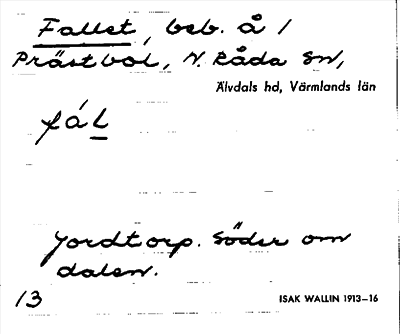 Fallet, beb. å 1
Prästbol, N. Råda sn,
Älvdals hd, Värmlands län
fáL
Jordtorp. Söder om
dalen.
13
ISAK WALLIN 1913–16